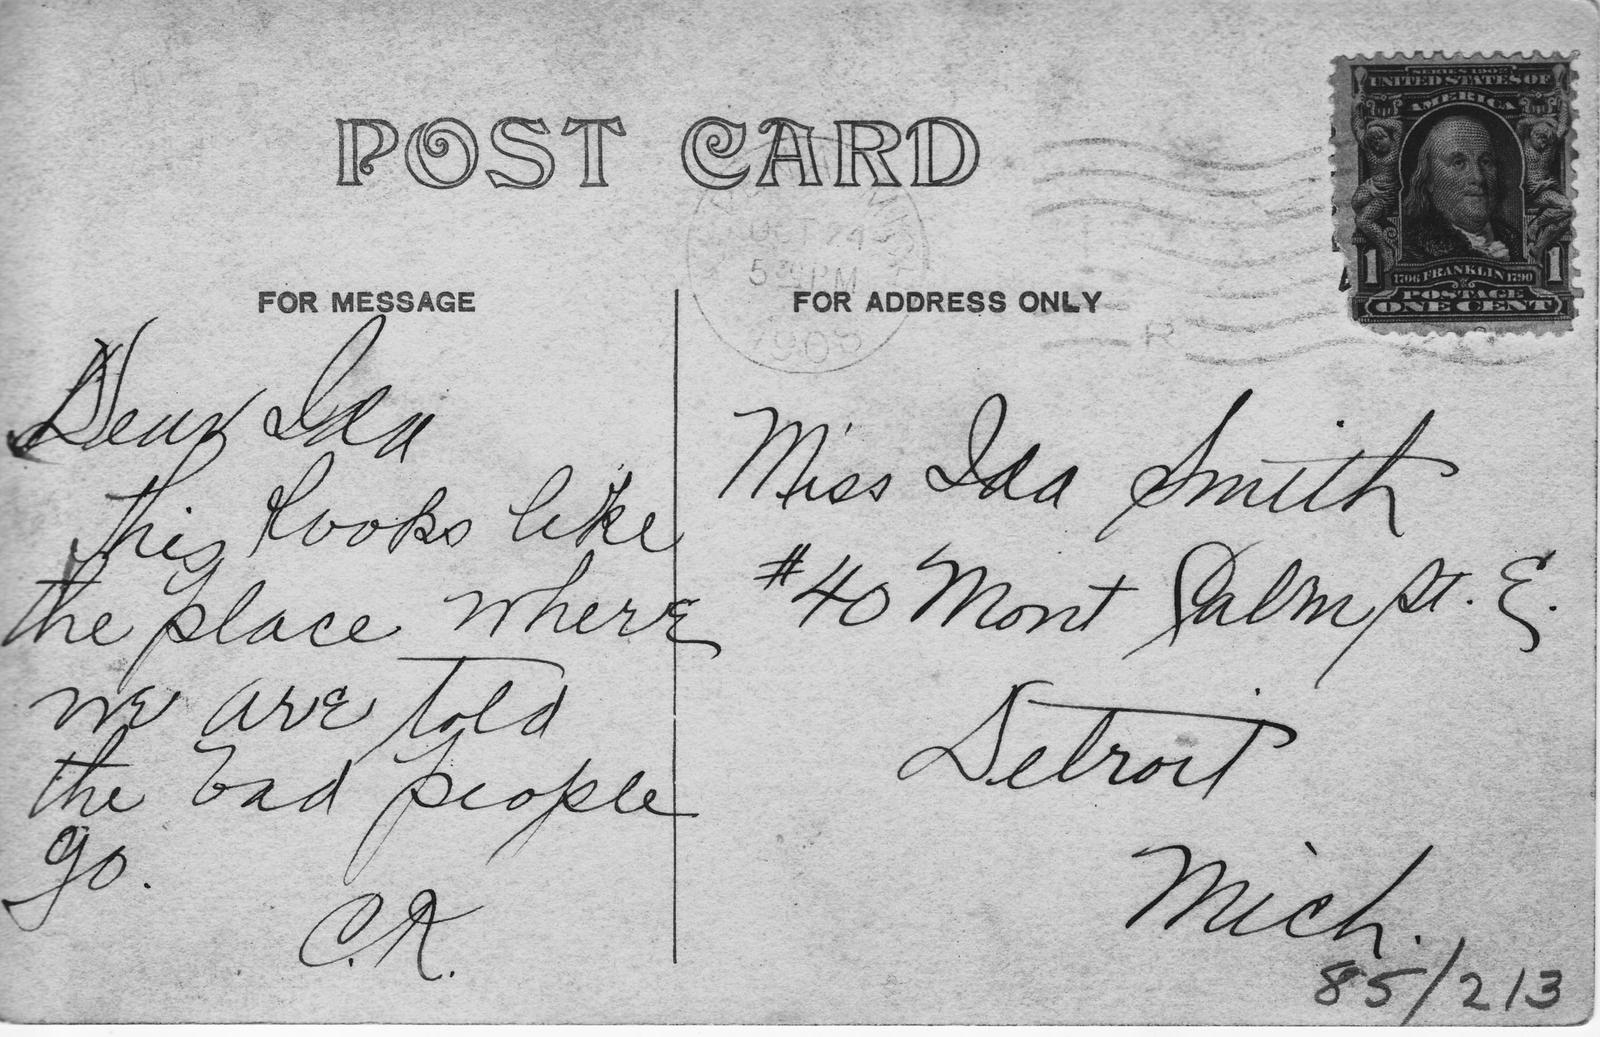 POST CARD
SERIES 1902
UNITED STATES OF
AMERICA
1 1706 FRANKLIN 1790 1
POSTAGE
ONE CENT
MICH
OCT 24
5 PM
1908
R
FOR MESSAGE
Dear Ida
this looks like
the place where
we are told
the bad people
go.
C.R.
FOR ADDRESS ONLY
Miss Ida Smith
#40 Mont Calm St. E.
Detroit
Mich.
85/213